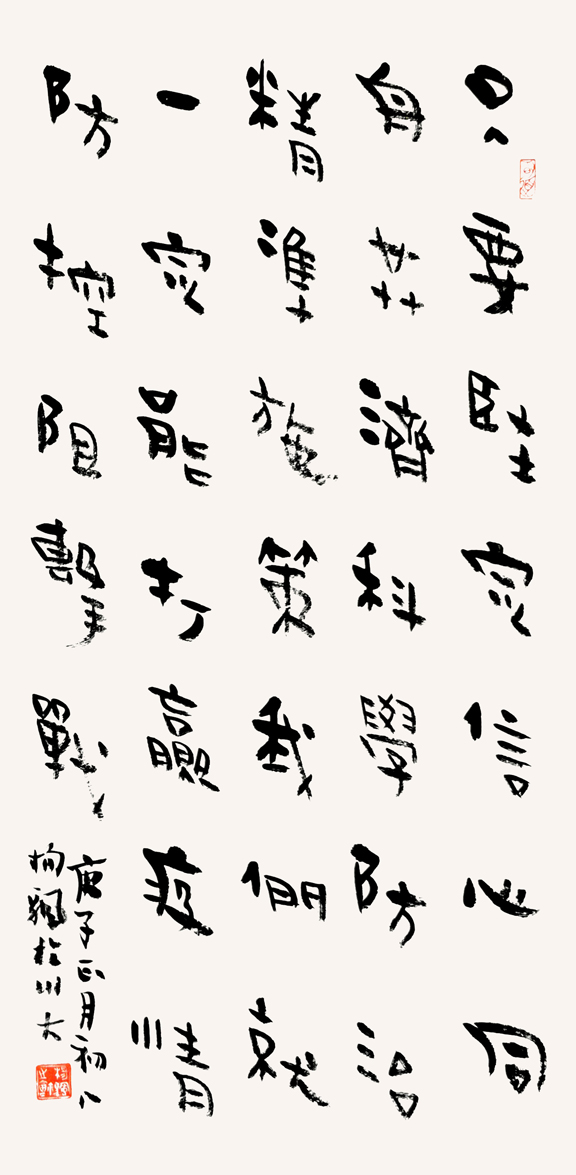 只要堅定信心同
舟共濟科學防治
精準施策我們就
一定能打贏疫情
防控阻擊戰
庚子正月初八
川大